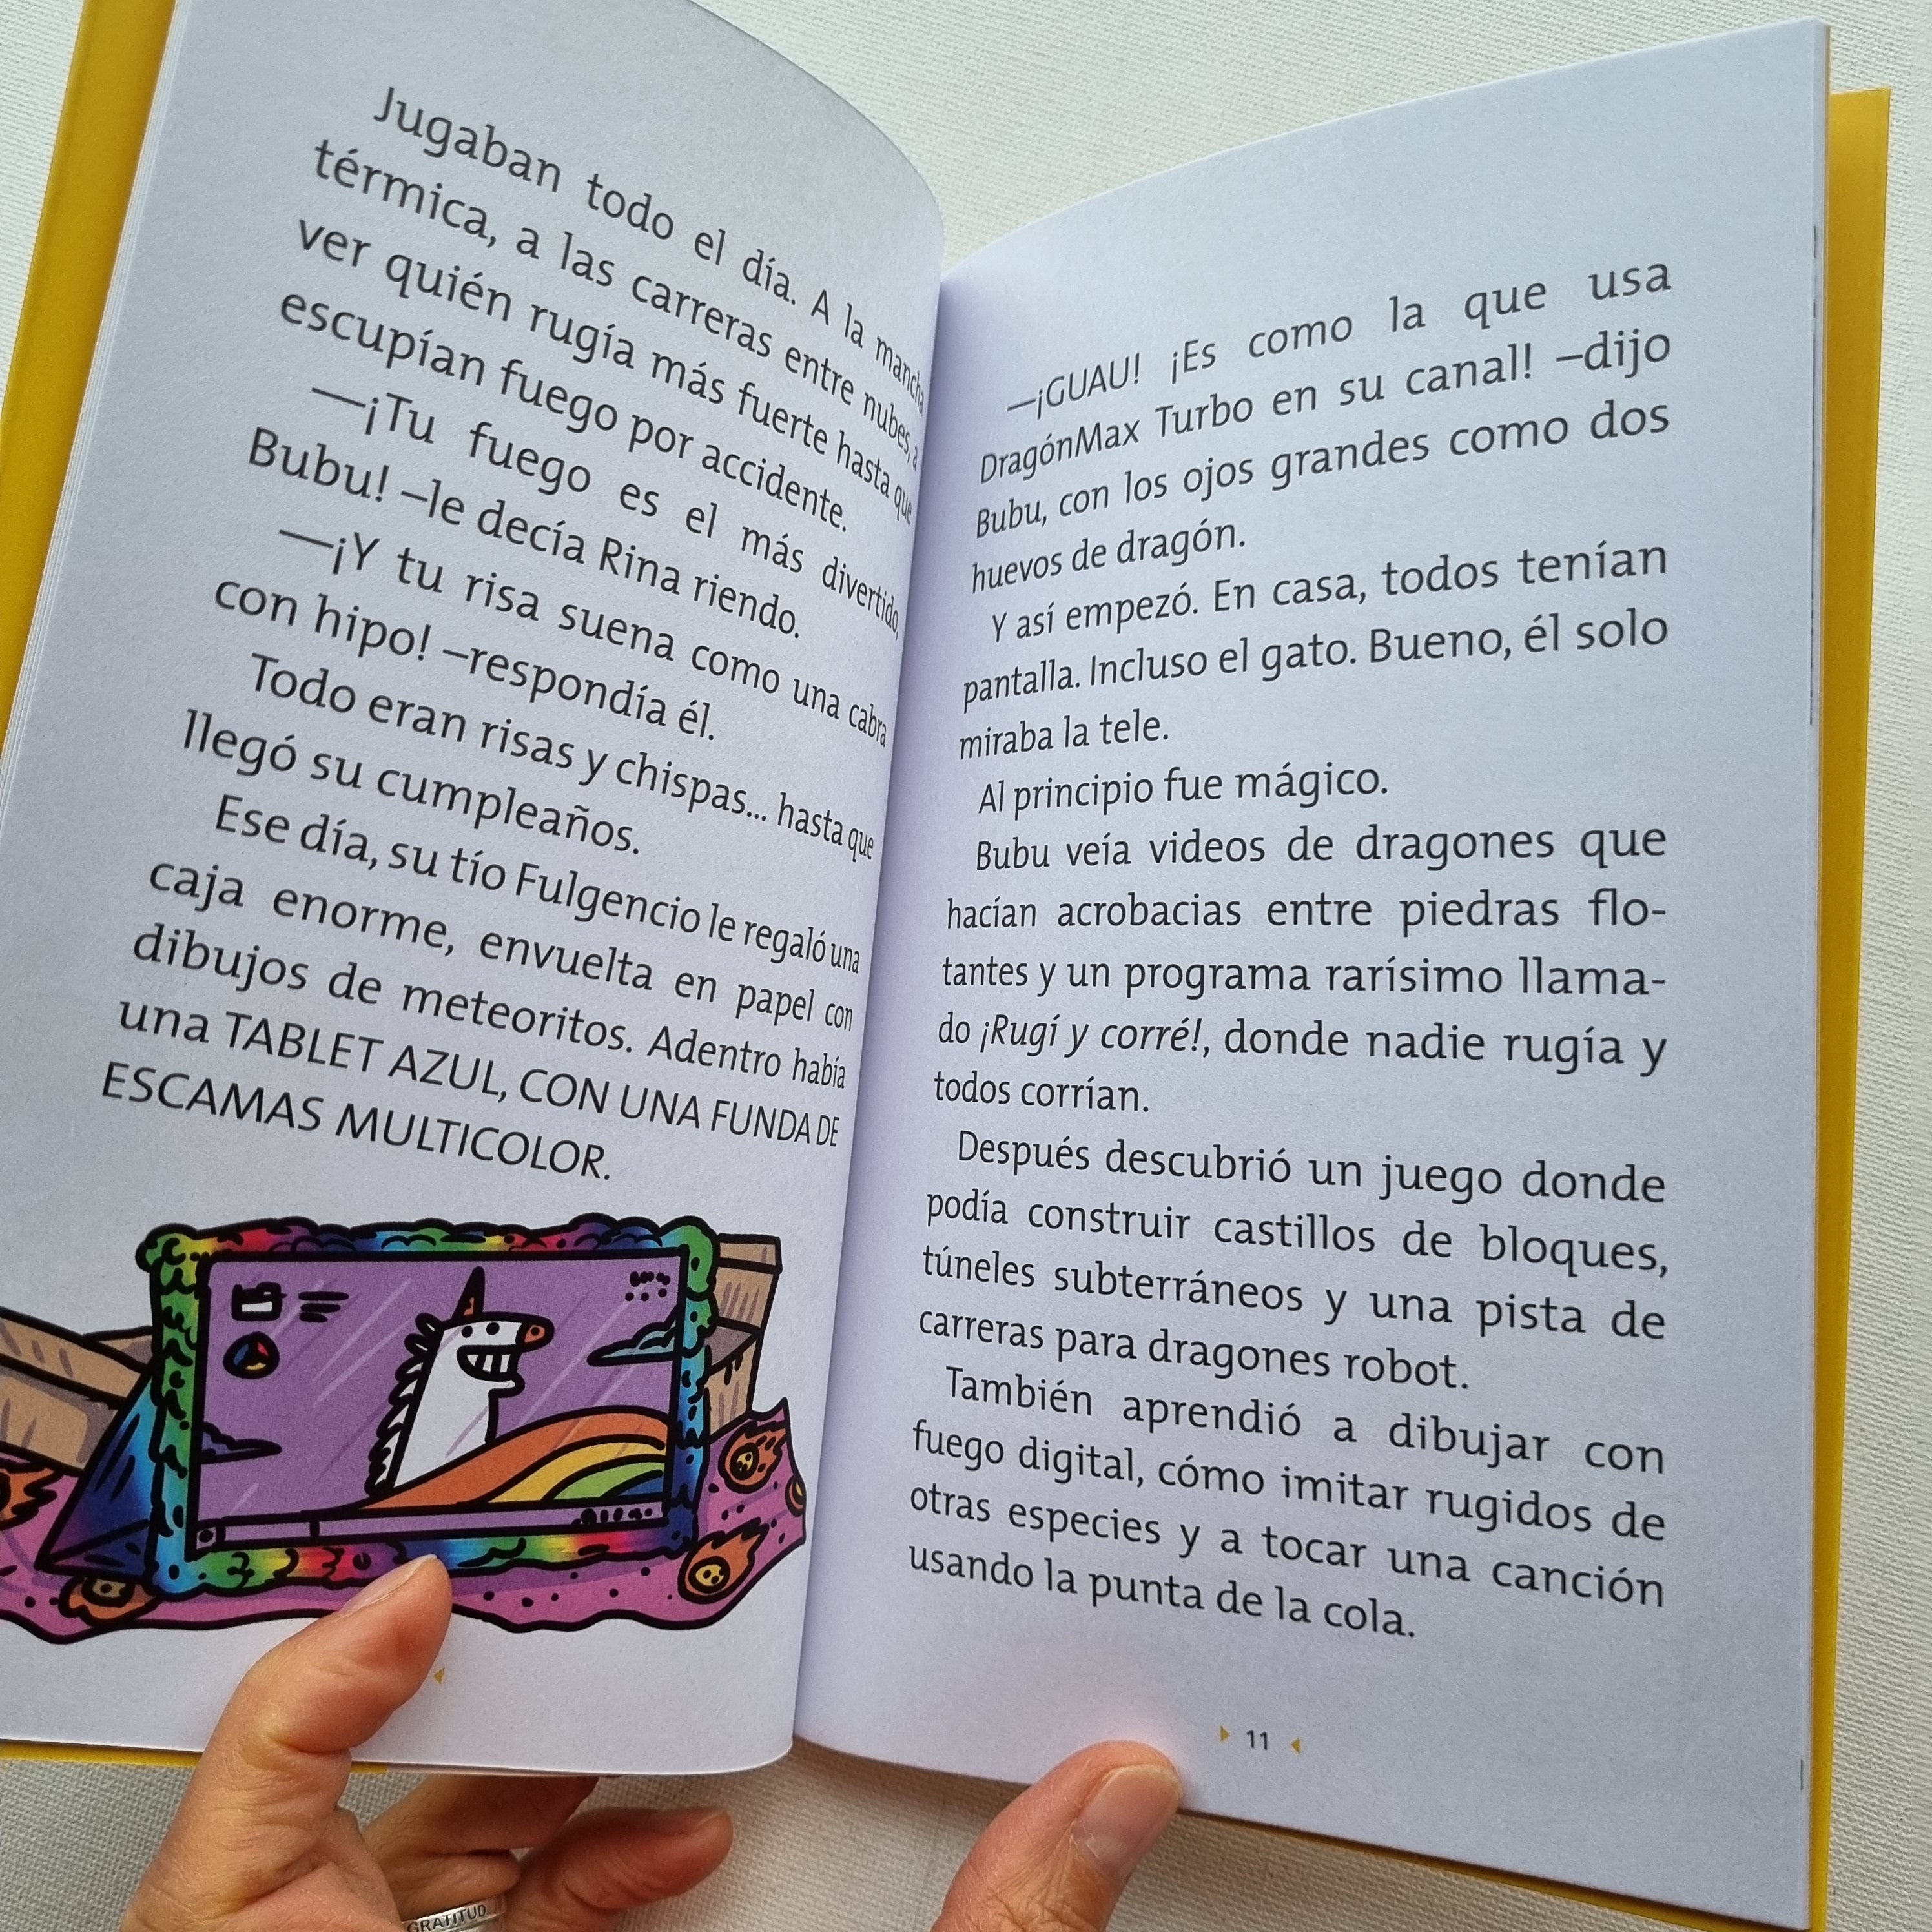 Jugaban todo el día. A la mancha
térmica, a las carreras entre nubes, a
ver quién rugía más fuerte hasta que
escupían fuego por accidente.
—¡Tu fuego es el más divertido,
Bubu! –le decía Rina riendo.
—¡Y tu risa suena como una cabra
con hipo! –respondía él.
Todo eran risas y chispas... hasta que
llegó su cumpleaños.
Ese día, su tío Fulgencio le regaló una
caja enorme, envuelta en papel con
dibujos de meteoritos. Adentro había
una TABLET AZUL, CON UNA FUNDA DE
ESCAMAS MULTICOLOR.
—¡GUAU! ¡Es como la que usa
DragónMax Turbo en su canal! –dijo
Bubu, con los ojos grandes como dos
huevos de dragón.
Y así empezó. En casa, todos tenían
pantalla. Incluso el gato. Bueno, él solo
miraba la tele.
Al principio fue mágico.
Bubu veía videos de dragones que
hacían acrobacias entre piedras flo-
tantes y un programa rarísimo llama-
do ¡Rugí y corré!, donde nadie rugía y
todos corrían.
Después descubrió un juego donde
podía construir castillos de bloques,
túneles subterráneos y una pista de
carreras para dragones robot.
También aprendió a dibujar con
fuego digital, cómo imitar rugidos de
otras especies y a tocar una canción
usando la punta de la cola.
11
GRATITUD